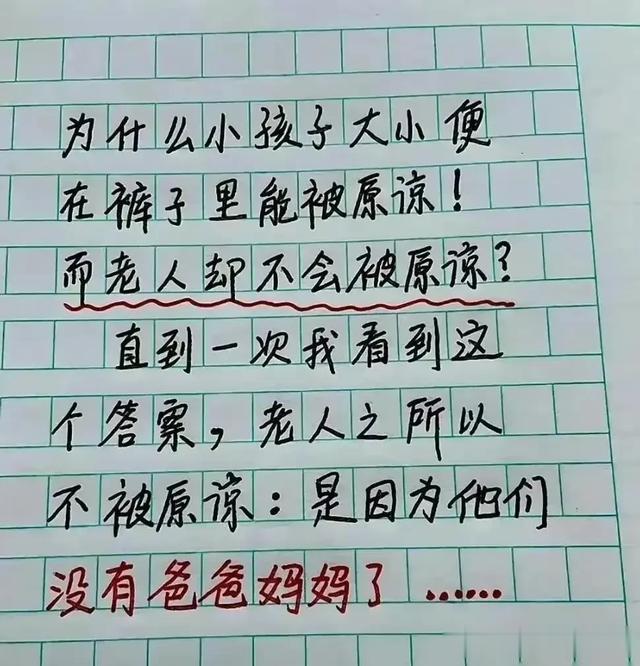 为什么小孩子大小便
在裤子里能被原谅!
而老人却不会被原谅?
直到一次我看到这
个答案,老人之所以
不被原谅:是因为他们
没有爸爸妈妈了……